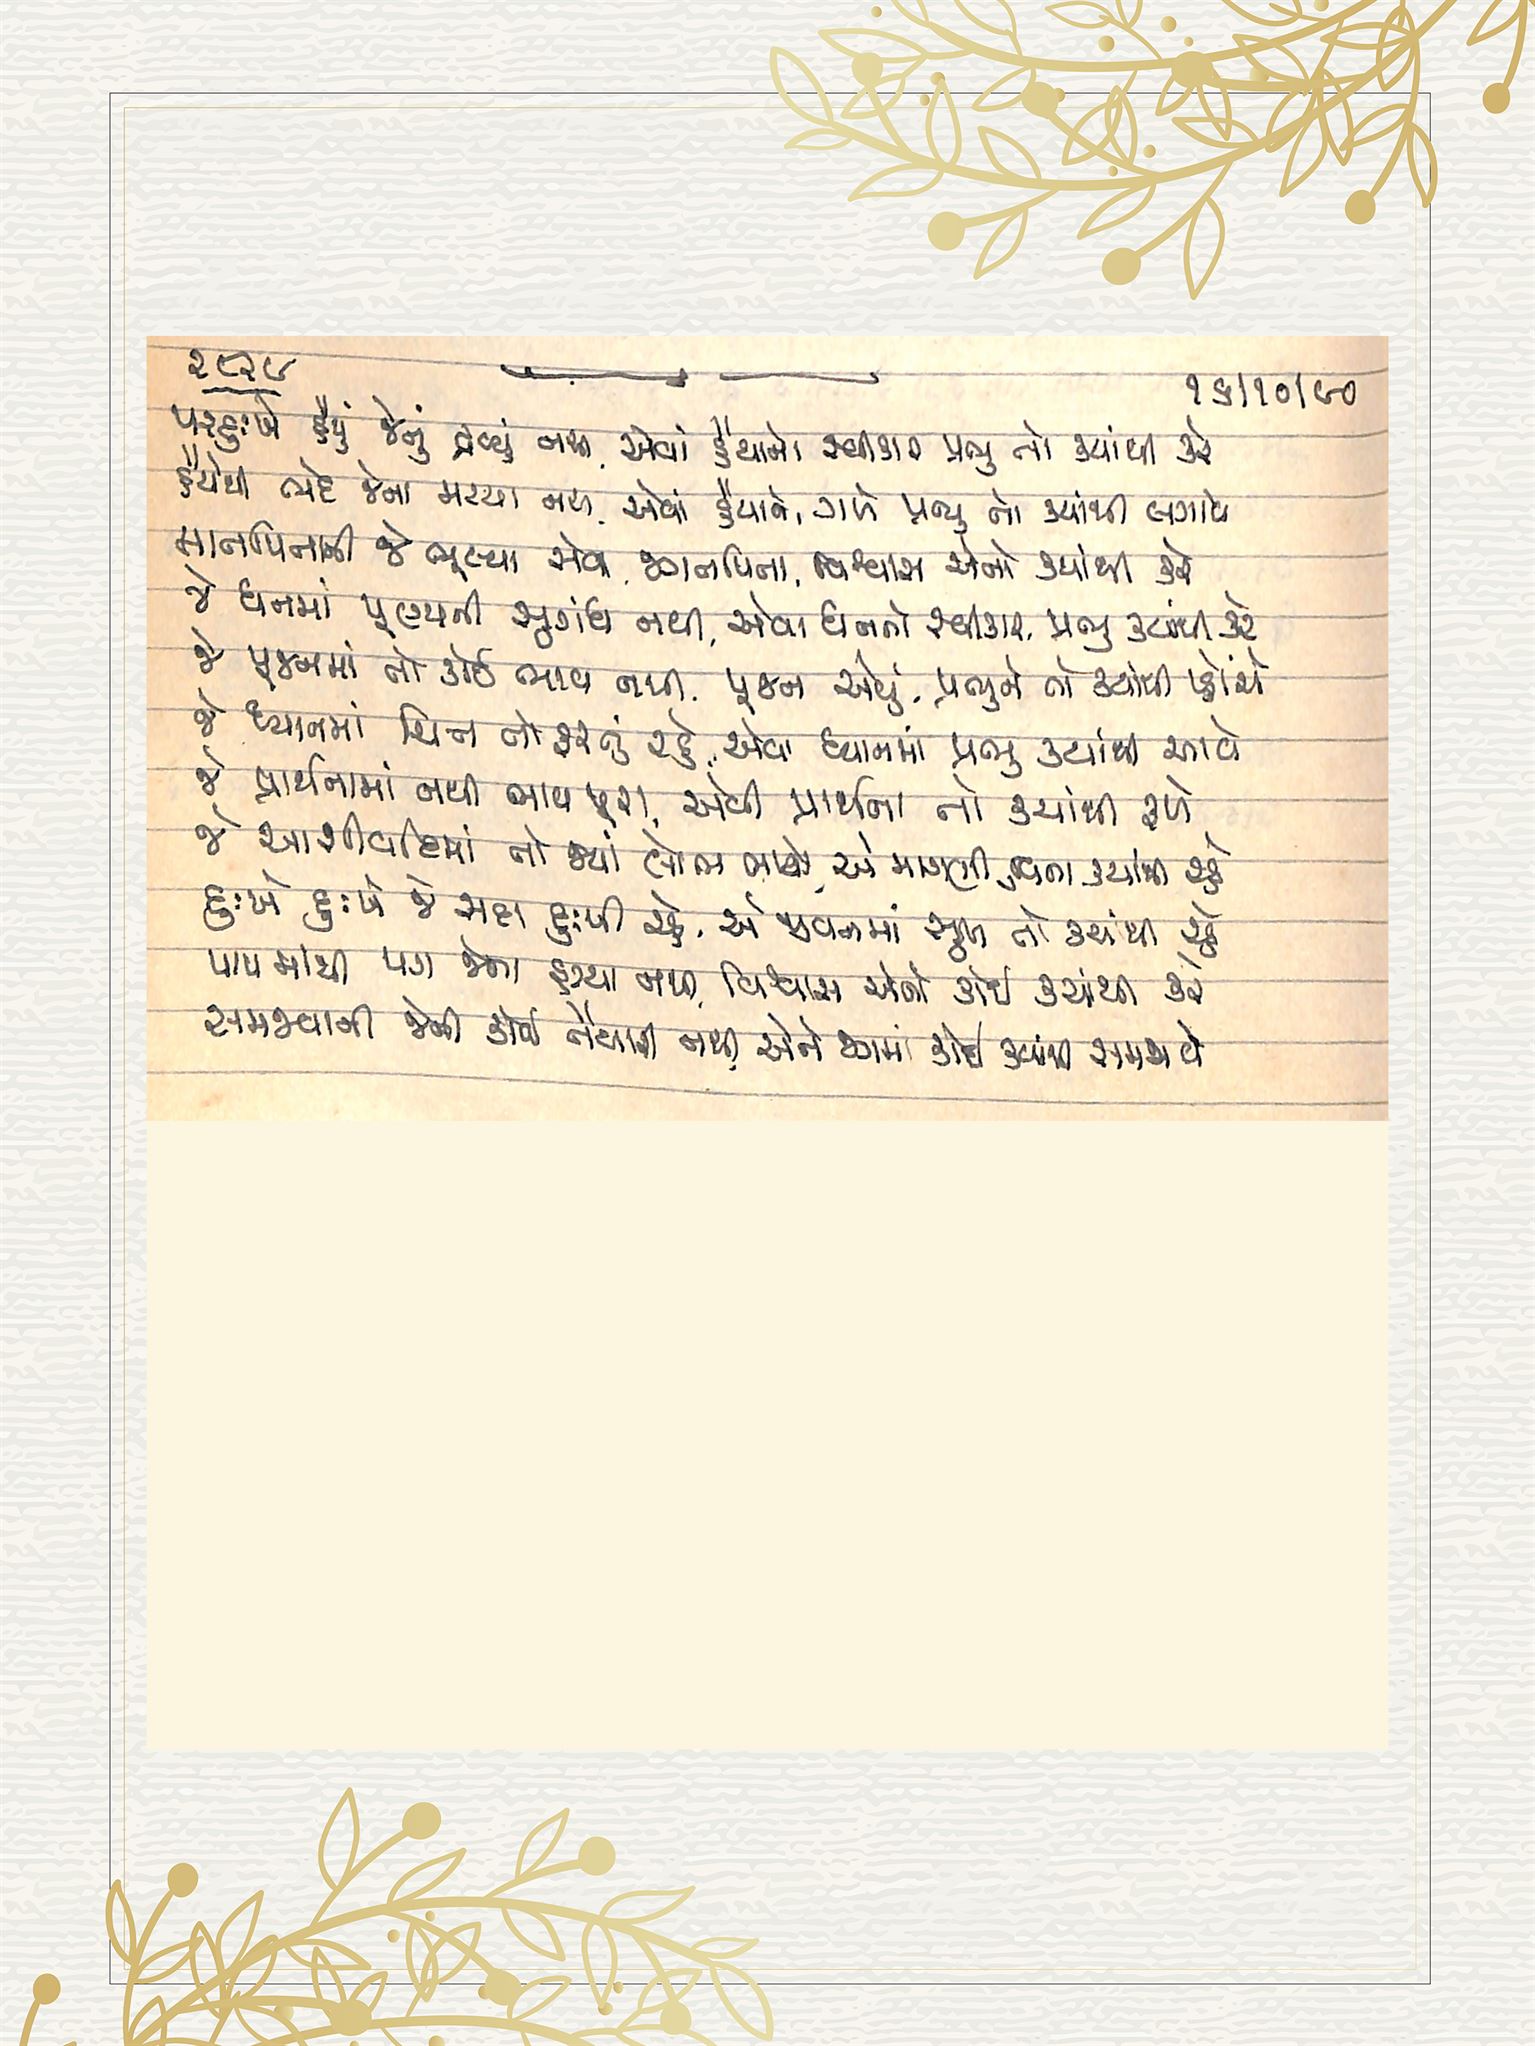 ૨૮૨૯
૧૬/૧૦/૯૦
પરદુઃખે હૈયું જેનું દ્રવ્યું નથી, એવાં હૈયાનો સ્વીકાર પ્રભુ તો ક્યાંથી કરે
હૈયેથી ભેદ જેના મટયા નથી, એવાં હૈયાને, ગળે પ્રભુ તો ક્યાંથી લગાવે
માતપિતાની જે ભૂલ્યા સેવા, જગતપિતા, વિશ્વાસ એનો ક્યાંથી કરે
જે ધનમાં પૂણ્યની સુગંધ નથી, એવા ધનનો સ્વીકાર, પ્રભુ ક્યાંથી કરે
જે પૂજનમાં તો કોઈ ભાવ નથી, પૂજન એવું, પ્રભુને તો ક્યાંથી પ્હોંચે
જે ધ્યાનમાં ચિત્ત તો ફરતું રહે, એવા ધ્યાનમાં પ્રભુ ક્યાંથી આવે
જે પ્રાર્થનામાં નથી ભાવ પૂરા, એવી પ્રાર્થના તો ક્યાંથી ફળે
જે આશીર્વાદમાં તો જ્યાં લોભ જાગે, એ માગણી વિના ક્યાંથી રહે
દુઃખે દુઃખે જે સદા દુઃખી રહે, એ જીવનમાં સુખ તો ક્યાંથી રહે
પાપમાંથી પગ જેના હટયા નથી, વિશ્વાસ એનો કોઈ ક્યાંથી કરે
સમજવાની જેની કોઈ તૈયારી નથી, એને જગમાં કોઈ ક્યાંથી સમજાવે